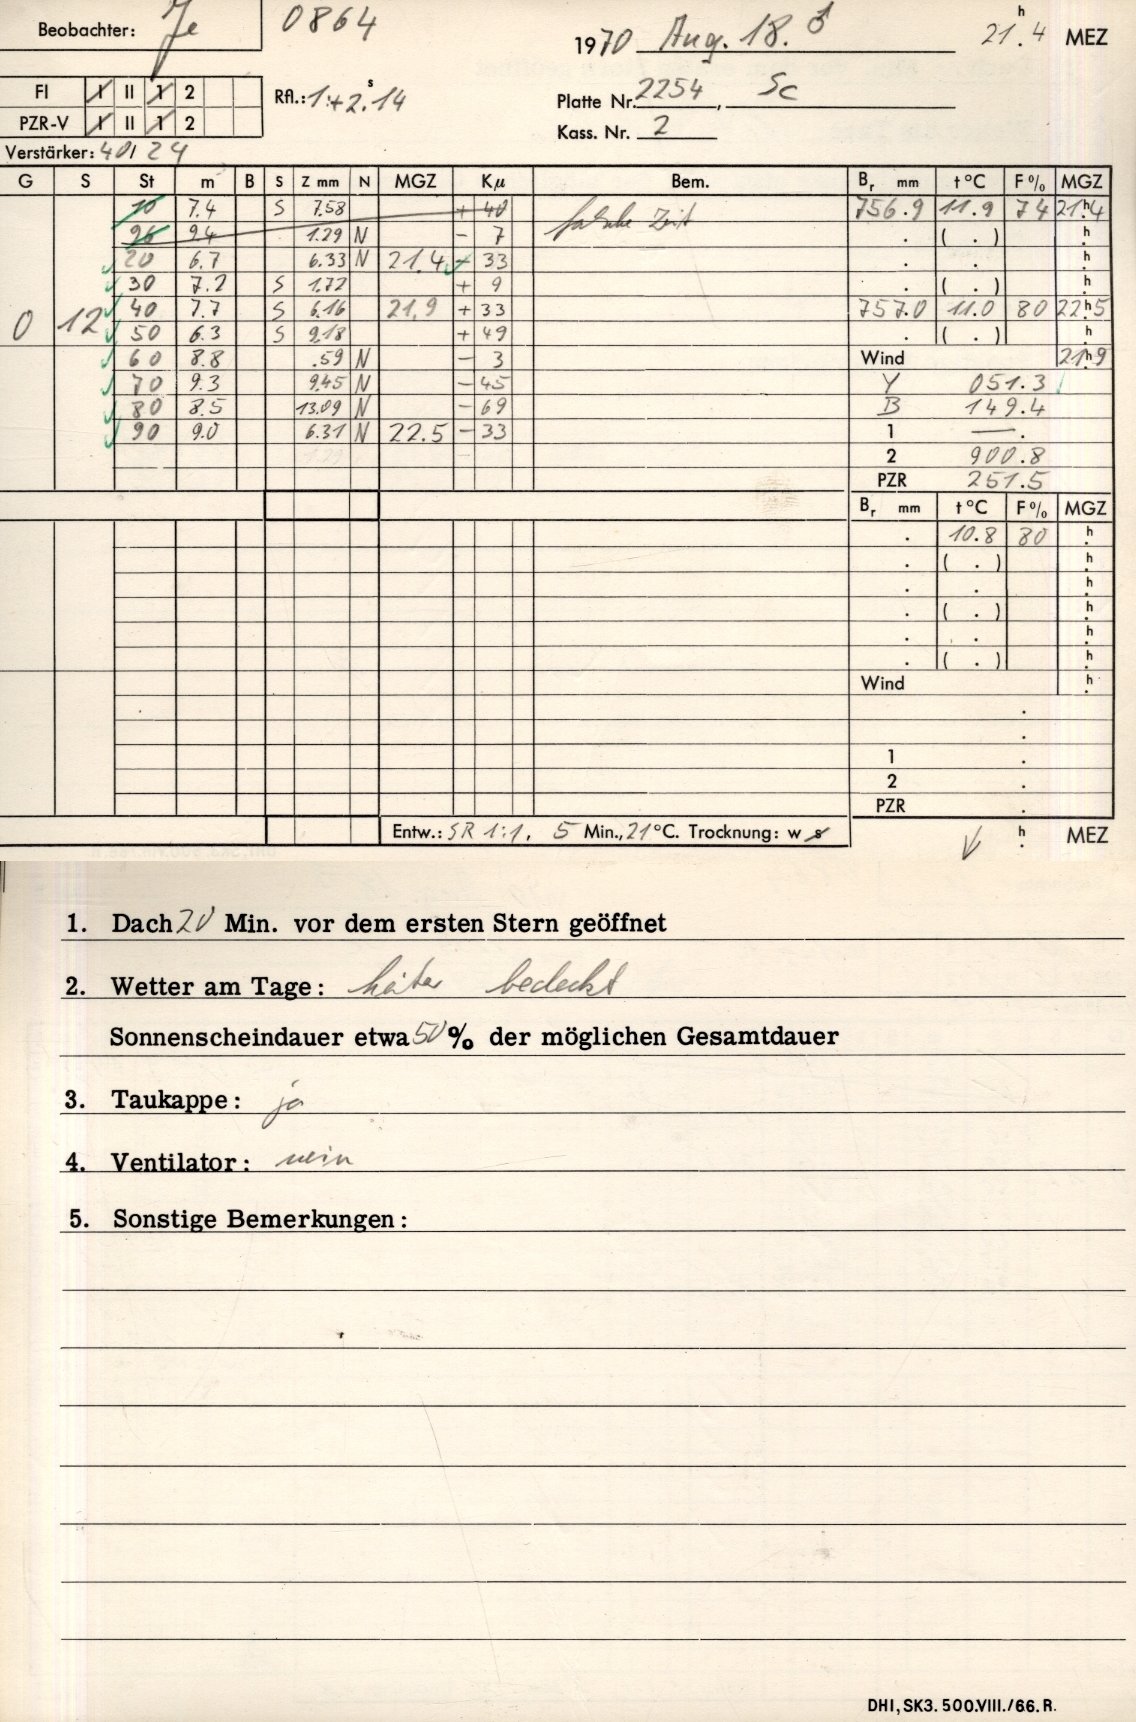 Beobachter: Je 0864
1970 Aug. 18. ♂ 21.4 h MEZ
FI I II 1 2 Rfl.: 1:+2.14 s
PZR-V I II 1 2
Platte Nr. 2254, Sc
Kass. Nr. 2
Verstärker: 40/24
G S St m B S Z mm N MGZ Kμ Bem. Br mm t°C F% MGZ
10 7.4 S 7.58 + 40 falsche Zeit 756.9 11.9 74 21.4 h
26 9.4 1.29 N - 7 . ( . ) h
20 6.7 6.33 N 21.4 - 33 . . h
30 7.2 S 1.72 + 9 . ( . ) h
0 12 40 7.7 S 6.16 21.9 + 33 757.0 11.0 80 22.5 h
50 6.3 S 9.18 + 49 . ( . ) h
60 8.8 .59 N - 3 Wind 21.9 h
70 9.3 9.45 N - 45 Y 051.3
80 8.5 13.09 N - 69 B 149.4
90 9.0 6.31 N 22.5 - 33 1 — .
2 900.8
PZR 251.5
Br mm t°C F% MGZ
. 10.8 80 h
. ( . ) h
. . h
. ( . ) h
. . h
. ( . ) h
Wind h
.
.
1 .
2 .
PZR .
Entw.: SR 1:1, 5 Min., 21°C. Trocknung: w s h MEZ
1. Dach 20 Min. vor dem ersten Stern geöffnet
2. Wetter am Tage: heiter bedeckt
Sonnenscheindauer etwa 50 % der möglichen Gesamtdauer
3. Taukappe: ja
4. Ventilator: nein
5. Sonstige Bemerkungen:
DHI, SK3. 500. VIII./66. R.